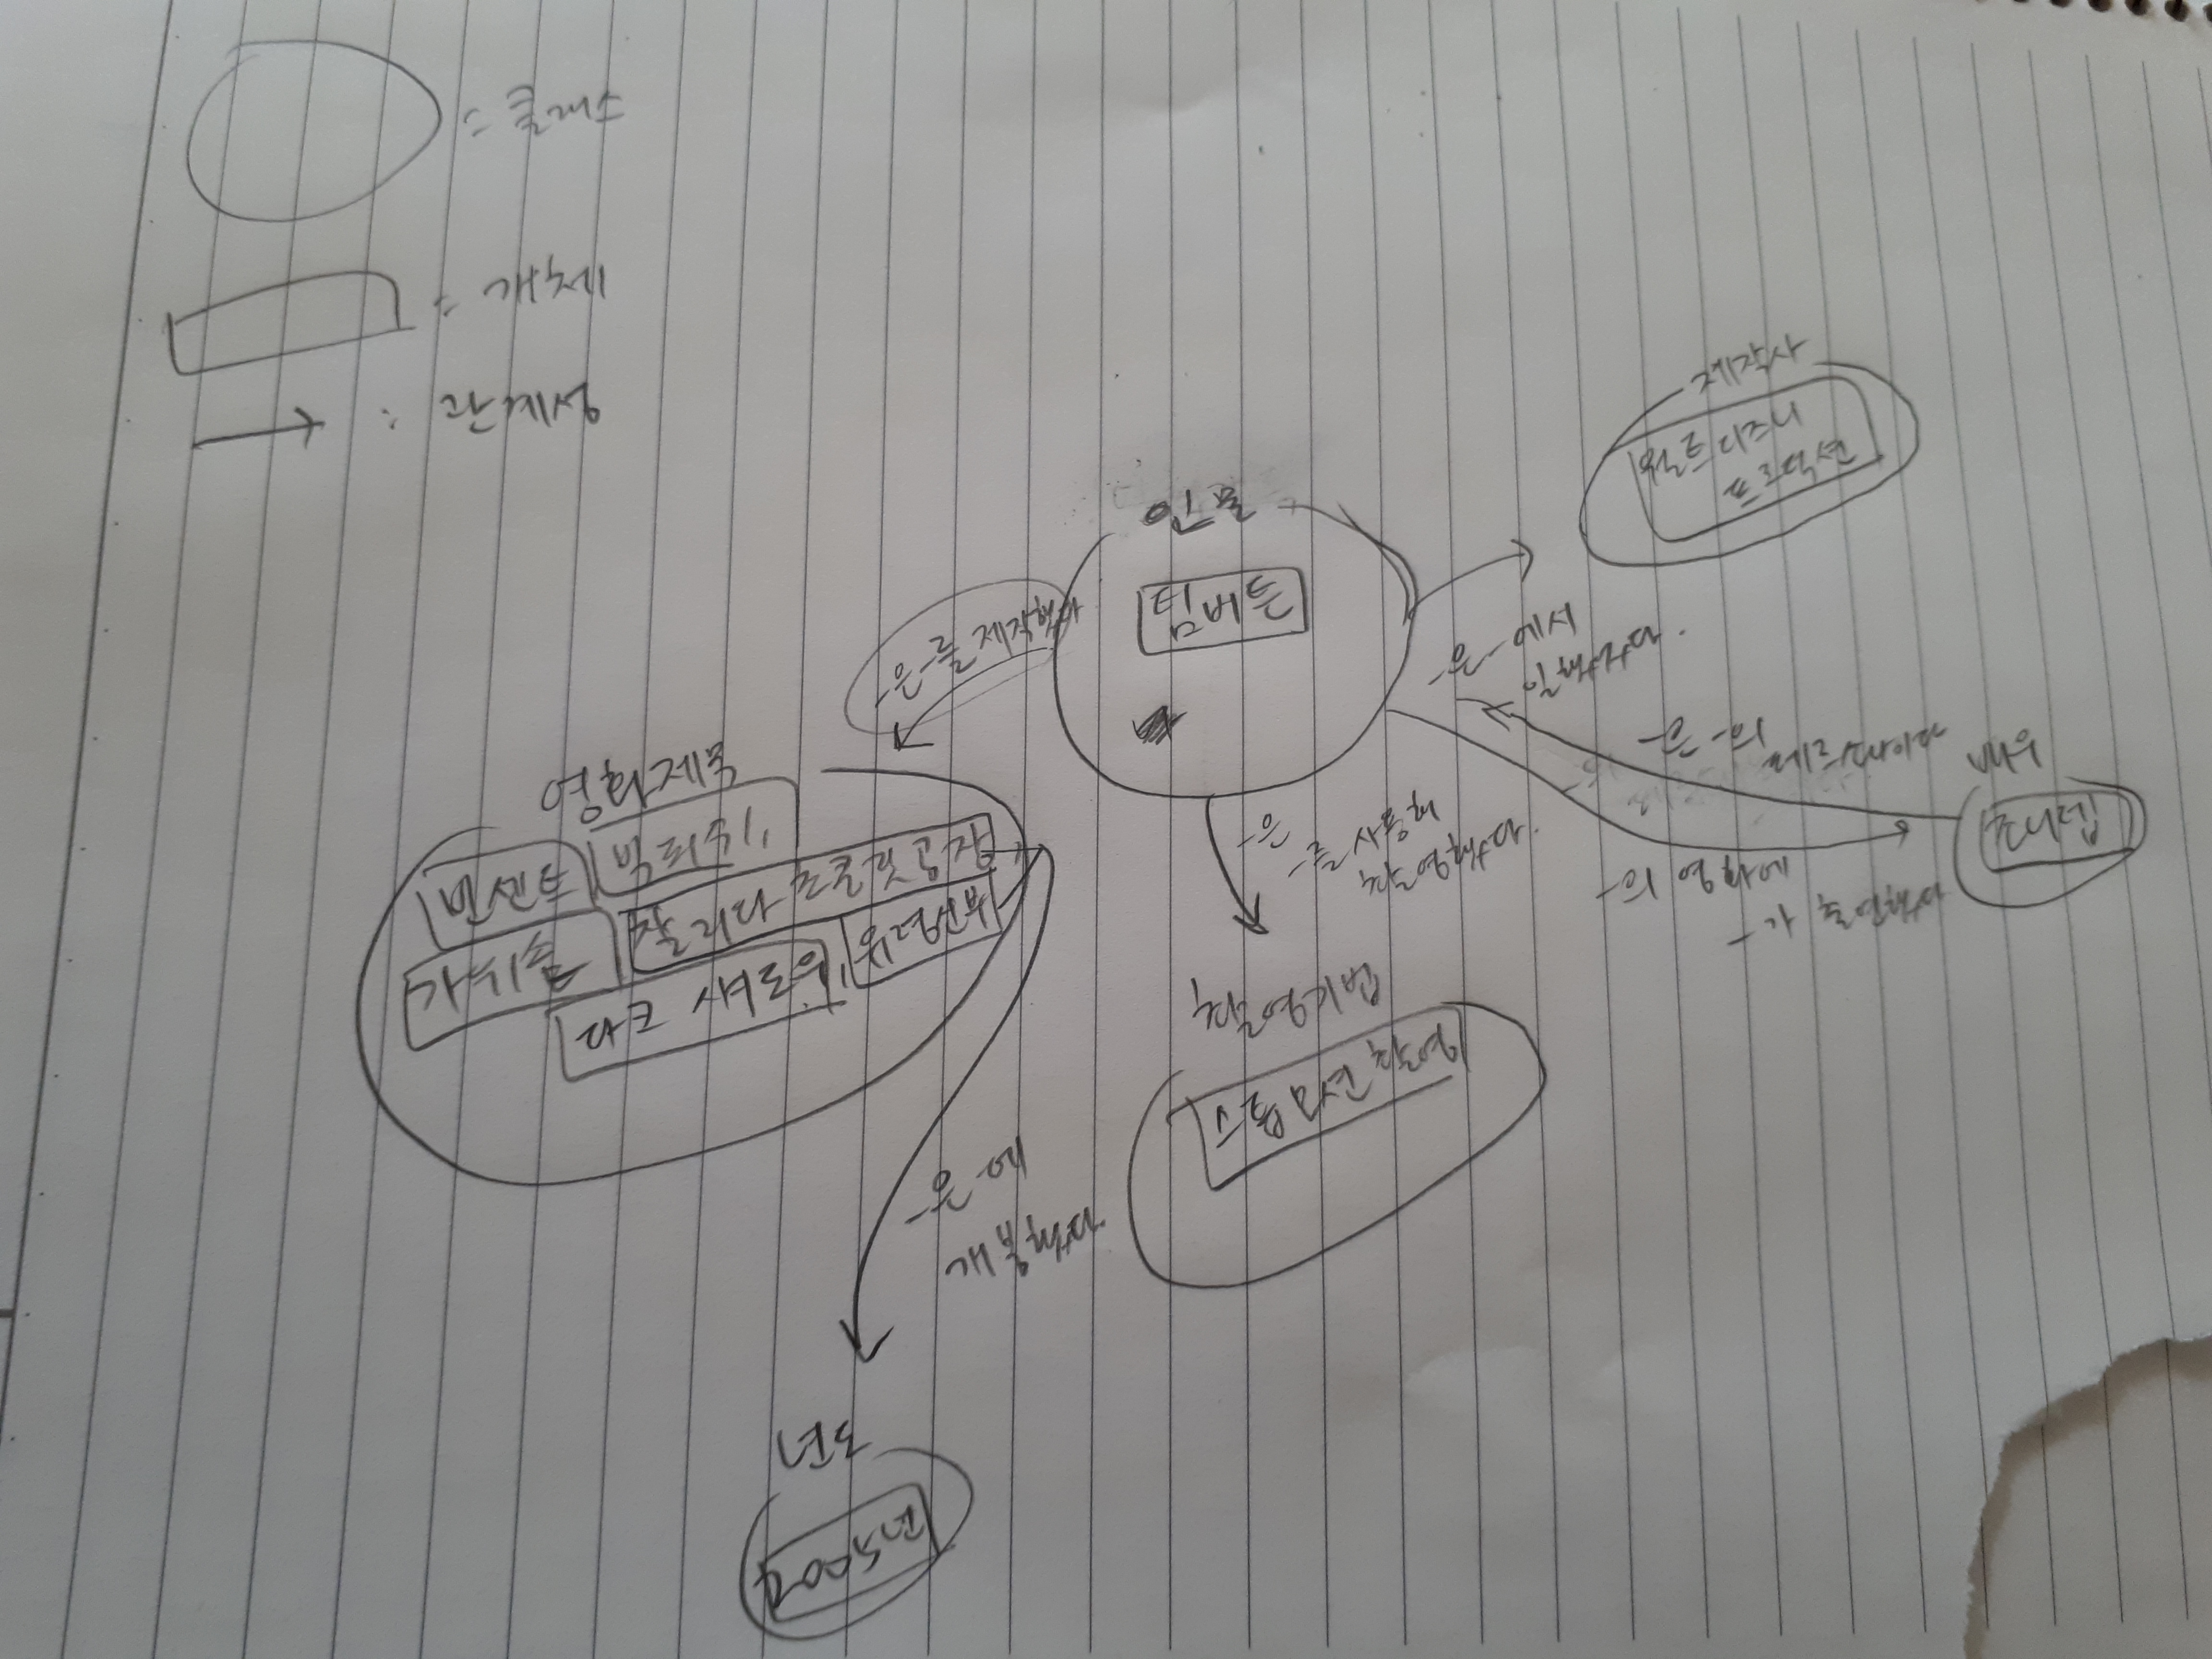 = 클래스
= 개체
: 관계성
제작사
월트디즈니
프로덕션
인물
팀버튼
-은-를 제작했다
-은-에서
일했다.
-은-의
페르소나이다
배우
조니뎁
-은
-를 사용해
촬영했다.
-의 영화에
-가 출연했다
영화제목
빅피쉬,
빈센트
찰리와 초콜릿공장
가위손
유령신부
다크 섀도우,
촬영기법
스톱모션 촬영
-은 에
개봉했다
년도
2005년